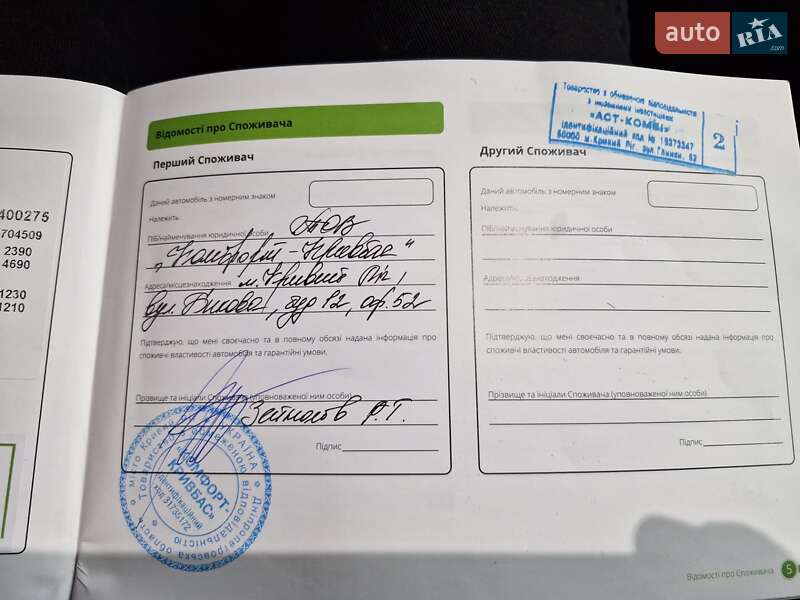 auto RIA.com
Товариство з обмеженою відповідальністю
з іноземними інвестиціями
«АСТ-КОМВІ»
Ідентифікаційний код № 19373247
50000 м.Кривий Ріг, вул.
2
Відомості про Споживача
Перший Споживач
Даний автомобіль з номерним знаком
Належить:
ПІБ/найменування юридичної особи ТОВ
"Комфорт-Кривбас"
Адреса/місцезнаходження м. Кривий Ріг,
вул. , буд 12, оф. 52
Підтверджую, що мені своєчасно та в повному обсязі надана інформація про
споживчі властивості автомобіля та гарантійні умови.
Прізвище та ініціали Споживача (уповноваженої ним особи)
Р.Т.
Підпис
місто Кривий УКРАЇНА Дніпропетровська область
Товариство з обмеженою відповідальністю
«КОМФОРТ-
КРИВБАС»
Ідентифікаційний
код 31735172
Другий Споживач
Даний автомобіль з номерним знаком
Належить:
ПІБ/найменування юридичної особи
Адреса/місцезнаходження
Підтверджую, що мені своєчасно та в повному обсязі надана інформація про
споживчі властивості автомобіля та гарантійні умови.
Прізвище та ініціали Споживача (уповноваженої ним особи)
Підпис
400275
704509
2390
4690
1230
1210
Відомості про Споживача 5